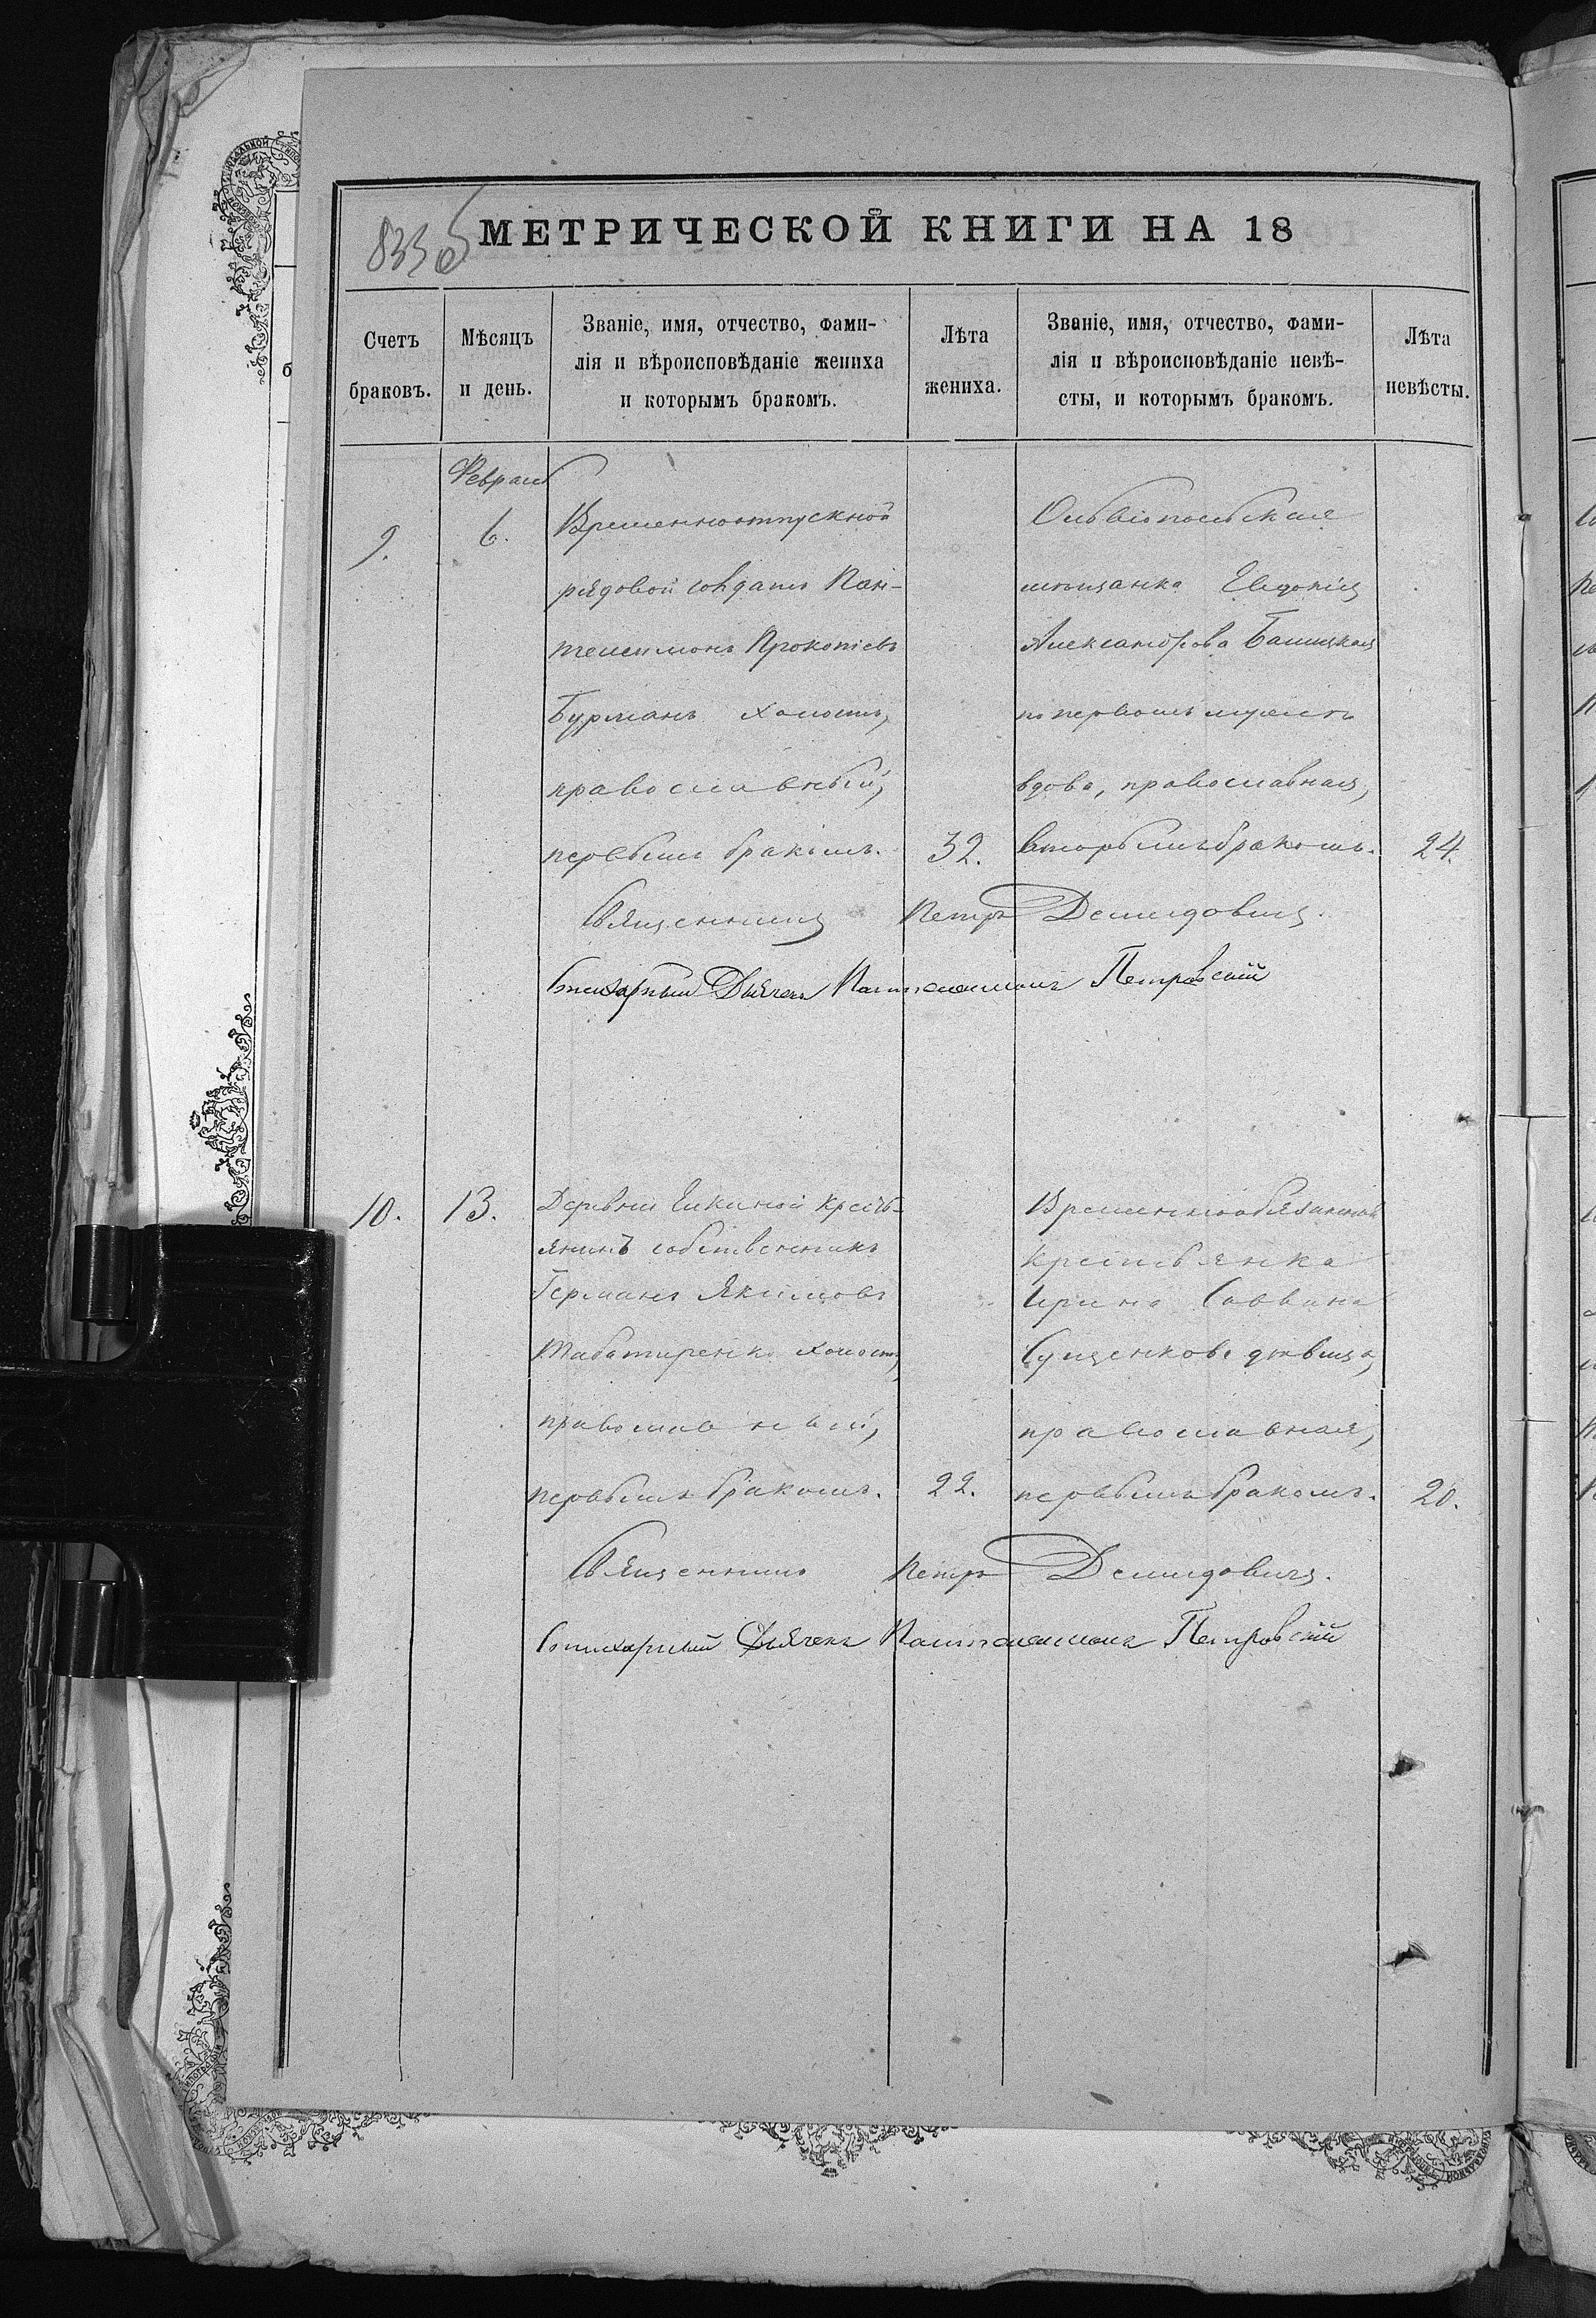 835 об
МЕТРИЧЕСКОЙ КНИГИ НА 18
Счетъ браковъ.
Мѣсяцъ и день.
Званіе, имя, отчество, фами-
лія и вѣроисповѣданіе жениха
и которымъ бракомъ.
Лѣта жениха.
Званіе, имя, отчество, фами-
лія и вѣроисповѣданіе невѣ-
сты, и которымъ бракомъ.
Лѣта невѣсты.
Февраль
9.
6.
Временноотпускной
рядовой солдатъ Пан-
телеимонъ Прокопіевъ
Бурманъ холостъ,
православный,
первымъ бракомъ.
32.
Ольвіопольская
мѣщанка Евдокія
Александрова
по первомъ мужѣ
вдова, православная,
вторымъ бракомъ.
24.
Священникъ Петръ Демидовичъ.
Стихарный Дьячекъ Пантелеимонъ Петровскій
10.
13.
Деревни Еткиной кресть-
янинъ собственникъ
Германъ Якимовъ
Табатиренко холостъ,
православный,
первымъ бракомъ.
22.
Временнообязанная
крестьянка
Ирина Саввина
Сущенкова дѣвица,
православная,
первымъ бракомъ.
20.
Священникъ Петръ Демидовичъ.
Стихарный Дьячекъ Пантелеимонъ Петровскій